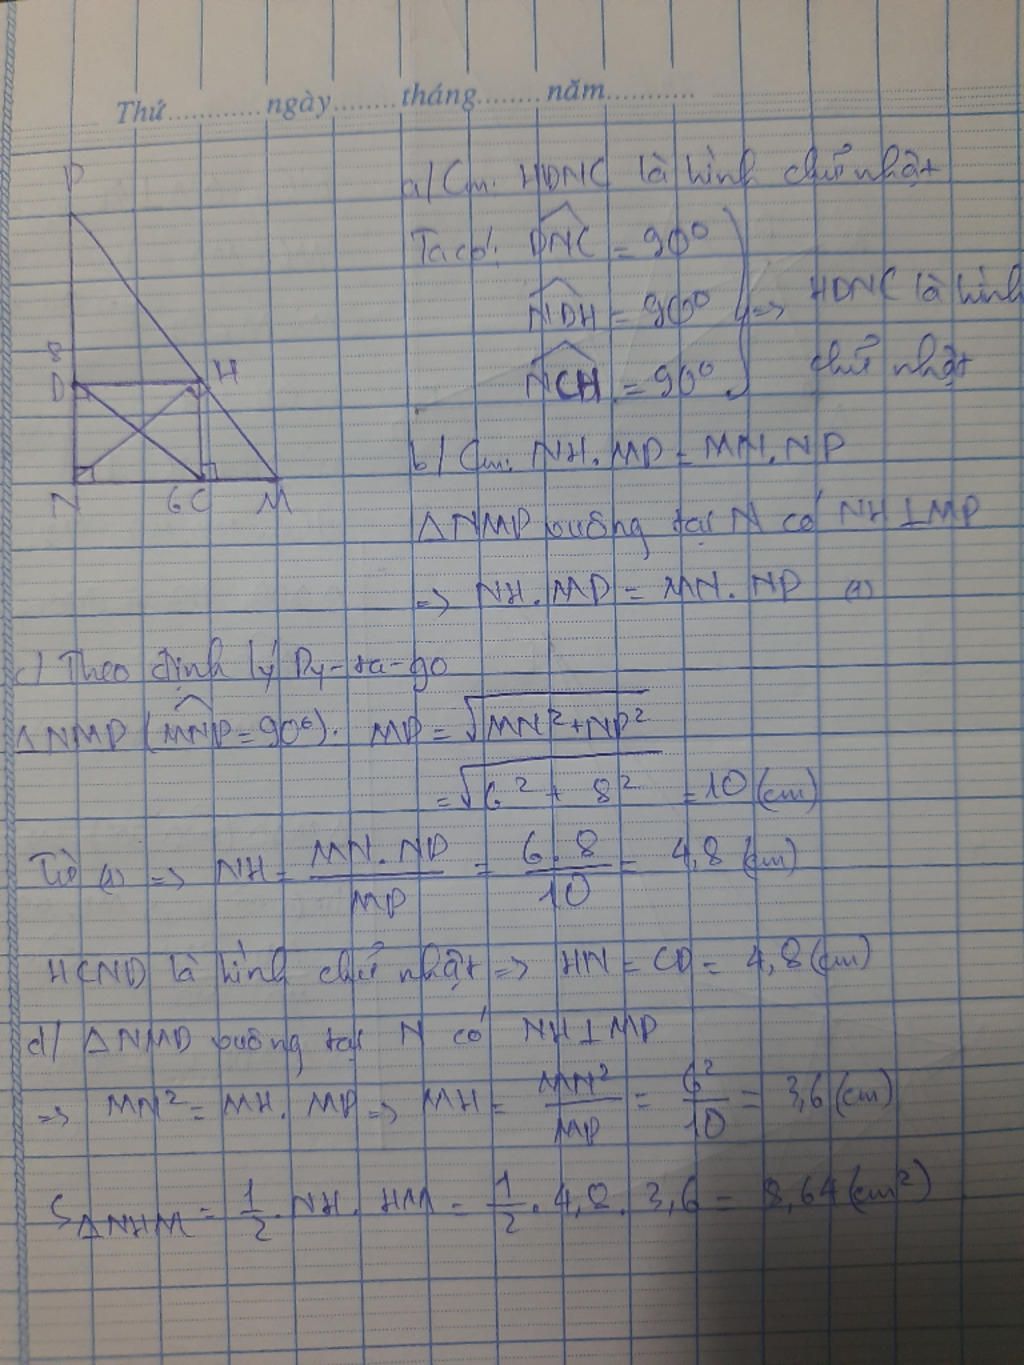 Thứ............ngày........tháng........năm...........
P
a/ Cm. HDNC là hình chữ nhật
Ta có: DNC = 90⁰
NDH = 90⁰ => HDNC là hình
NCH = 90⁰ chữ nhật
8
D H
N 6 C M
b/ Cm. NH.MP = MN.NP
△NMP vuông tại N có NH⊥MP
=> NH.MP = MN.NP (1)
c/ Theo định lý Py-ta-go
△NMP (MNP = 90⁰): MP = √MN²+NP²
= √6² + 8² = 10 (cm)
Từ (1) => NH = MN.NP / MP = 6.8 / 10 = 4,8 (cm)
HCND là hình chữ nhật => HN = CD = 4,8 (cm)
d/ △NMP vuông tại N có NH⊥MP
=> MN² = MH.MP => MH = MN² / MP = 6² / 10 = 3,6 (cm)
S△NHM = 1/2 . NH . HM = 1/2 . 4,8 . 3,6 = 8,64 (cm²)